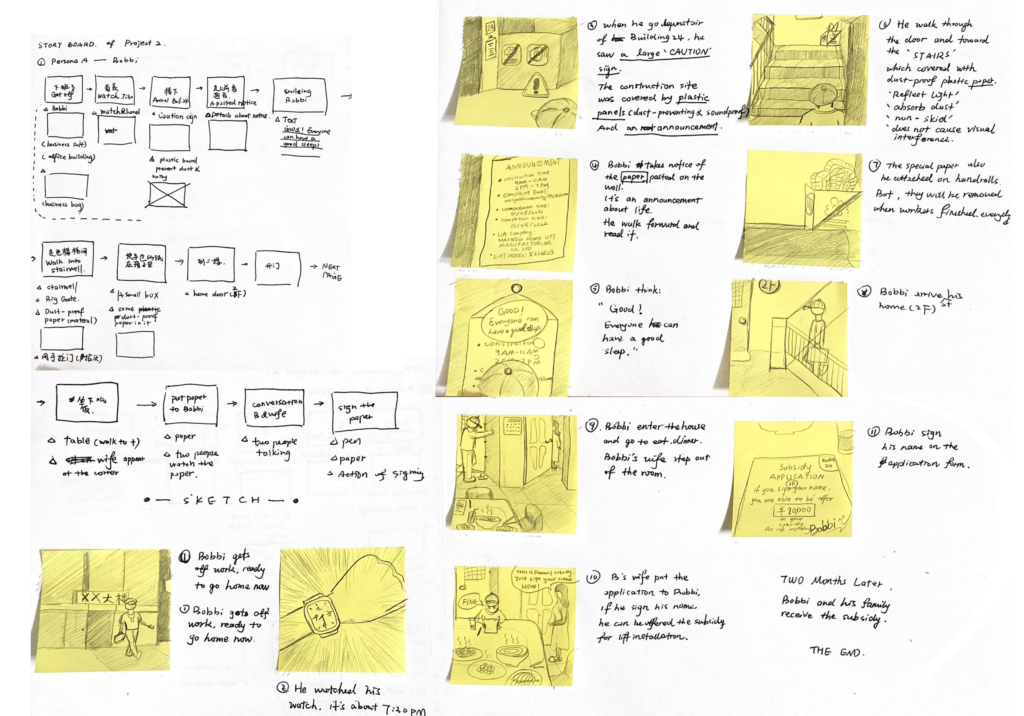 STORY BOARD. of Project 2.
① Persona A — Bobbi
下班了
Get off
看表
Watch Time
楼下
Smileing
Bobbi
△ Bobbi
(business suit)
(office building)
(business bag)
△ watch & hand
△ Caution sign
△ plastic board
prevent dust &
△ Details about notice.
△ TEXT
Good! Everyone
can have a
good sleep!
Walk into
stairwell.
到二楼.
开门
→ NEXT
PAGE
△ stairwell
△ Big Gate.
△ Dust-proof
paper (material)
△ A small box
△ some
dust-proof
paper in it
△ home door (2F)
坐下吃饭.
put paper
to Bobbi
conversation
B & wife
sign the
paper
△ table (walk to t)
△ wife appear
at the corner
△ paper
△ two people
watch the
paper.
△ two people
talking
△ pen
△ paper
△ Action of signing
— SKETCH —
XX大楼
① Bobbi gets
off work, ready
to go home now
① Bobbi gets off
work, ready to
go home now.
② He watched his
watch, it's about 7:30 PM
③ when he go downstair
of Building 24, he
saw a large 'CAUTION'
sign.
The construction site
was covered by plastic
panels (dust-preventing & soundproof)
And an announcement.
ANNOUNCEMENT
• construction time:
9AM-11AM
2PM-5PM
④ Bobbi takes notice of
the paper pasted on the
wall.
it's an announcement
about life.
He walk forward and
read it.
GOOD!
Everyone can
have a good sleep
9AM-11AM
⑤ Bobbi think:
" Good!
Everyone can
have a good
sleep."
⑥ He walk through
the door and toward
the 'STAIRS'
which covered with
dust-proof plastic paper.
'Reflect light'
'absorb dust'
'non-skid'
'does not cause visual
interference.
⑦ The special paper also
be attached on handrails.
But, they will be removed
when workers finished, everyday
2F
⑧ Bobbi arrive his
home (2F)
⑨ Bobbi enter the house
and go to eat dinner.
Bobbi's wife step out
of the room.
FINE
Just sign your name
NOW!
⑩ B's wife put the
application to Bobbi,
if he sign his name,
he can be offered the subsidy
for lift installation.
Subsidy
APPLICATION
If you sign your name,
you are able to be offer
¥20000
Bobbi
⑪ Bobbi sign
his name on the
application form.
TWO Months Later,
Bobbi and his family
receive the subsidy.
THE END.